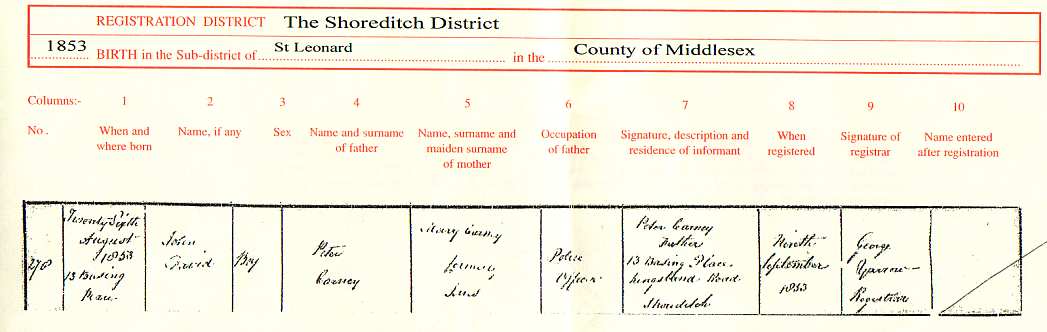 REGISTRATION DISTRICT The Shoreditch District
1853 BIRTH in the Sub-district of St Leonard in the County of Middlesex
Columns:- 1 2 3 4 5 6 7 8 9 10
No. When and where born
Name, if any
Sex
Name and surname of father
Name, surname and maiden surname of mother
Occupation of father
Signature, description and residence of informant
When registered
Signature of registrar
Name entered after registration
276
Twenty Sixth
August
1853
13 Basing
Place
John
David
Boy
Peter
Carney
Mary Carney
formerly
Police
Officer
Peter Carney
Father
13 Basing Place
Kingsland Road
Shoreditch
Ninth
September
1853
George
Registrar